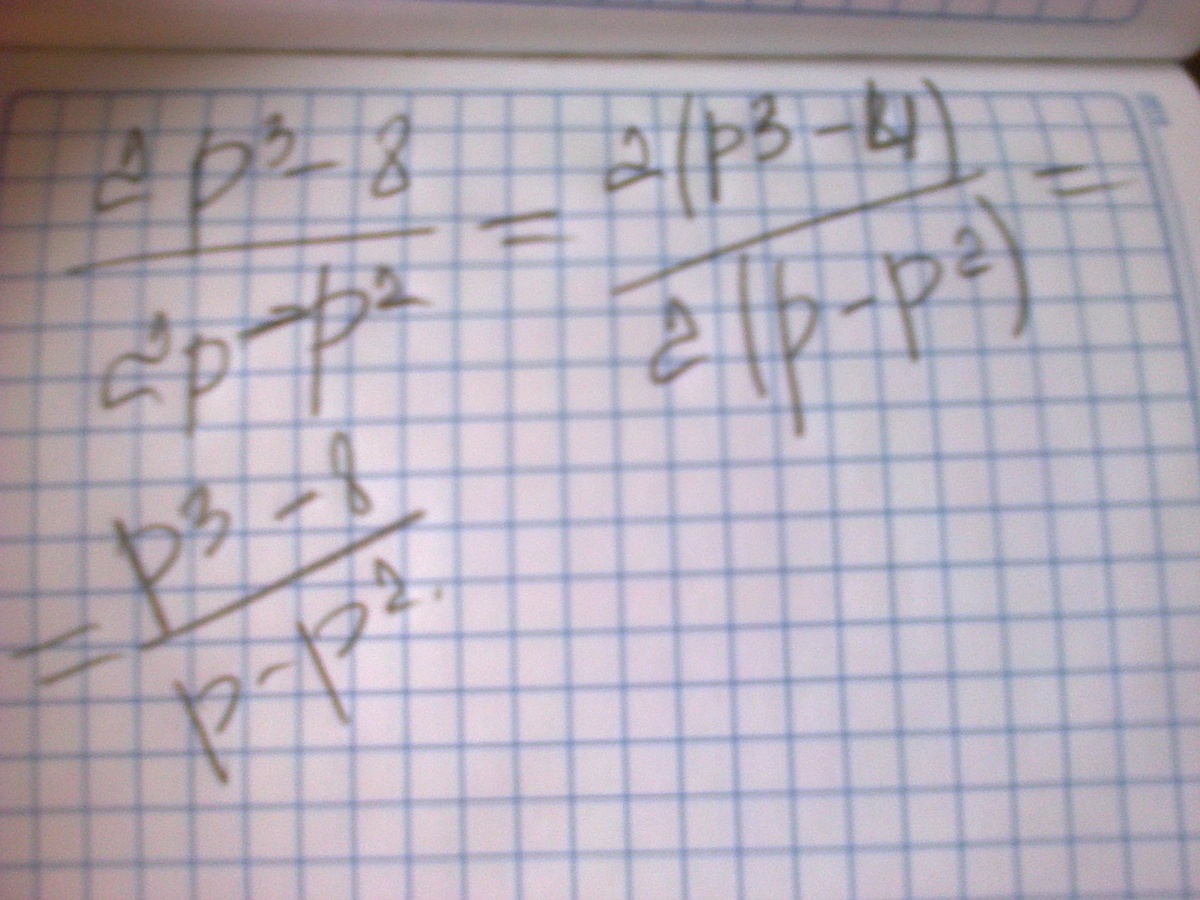 2p³ - 8 / 2p - p² = 2(p³ - 4) / 2(p - p²) =
= p³ - 8 / p - p².